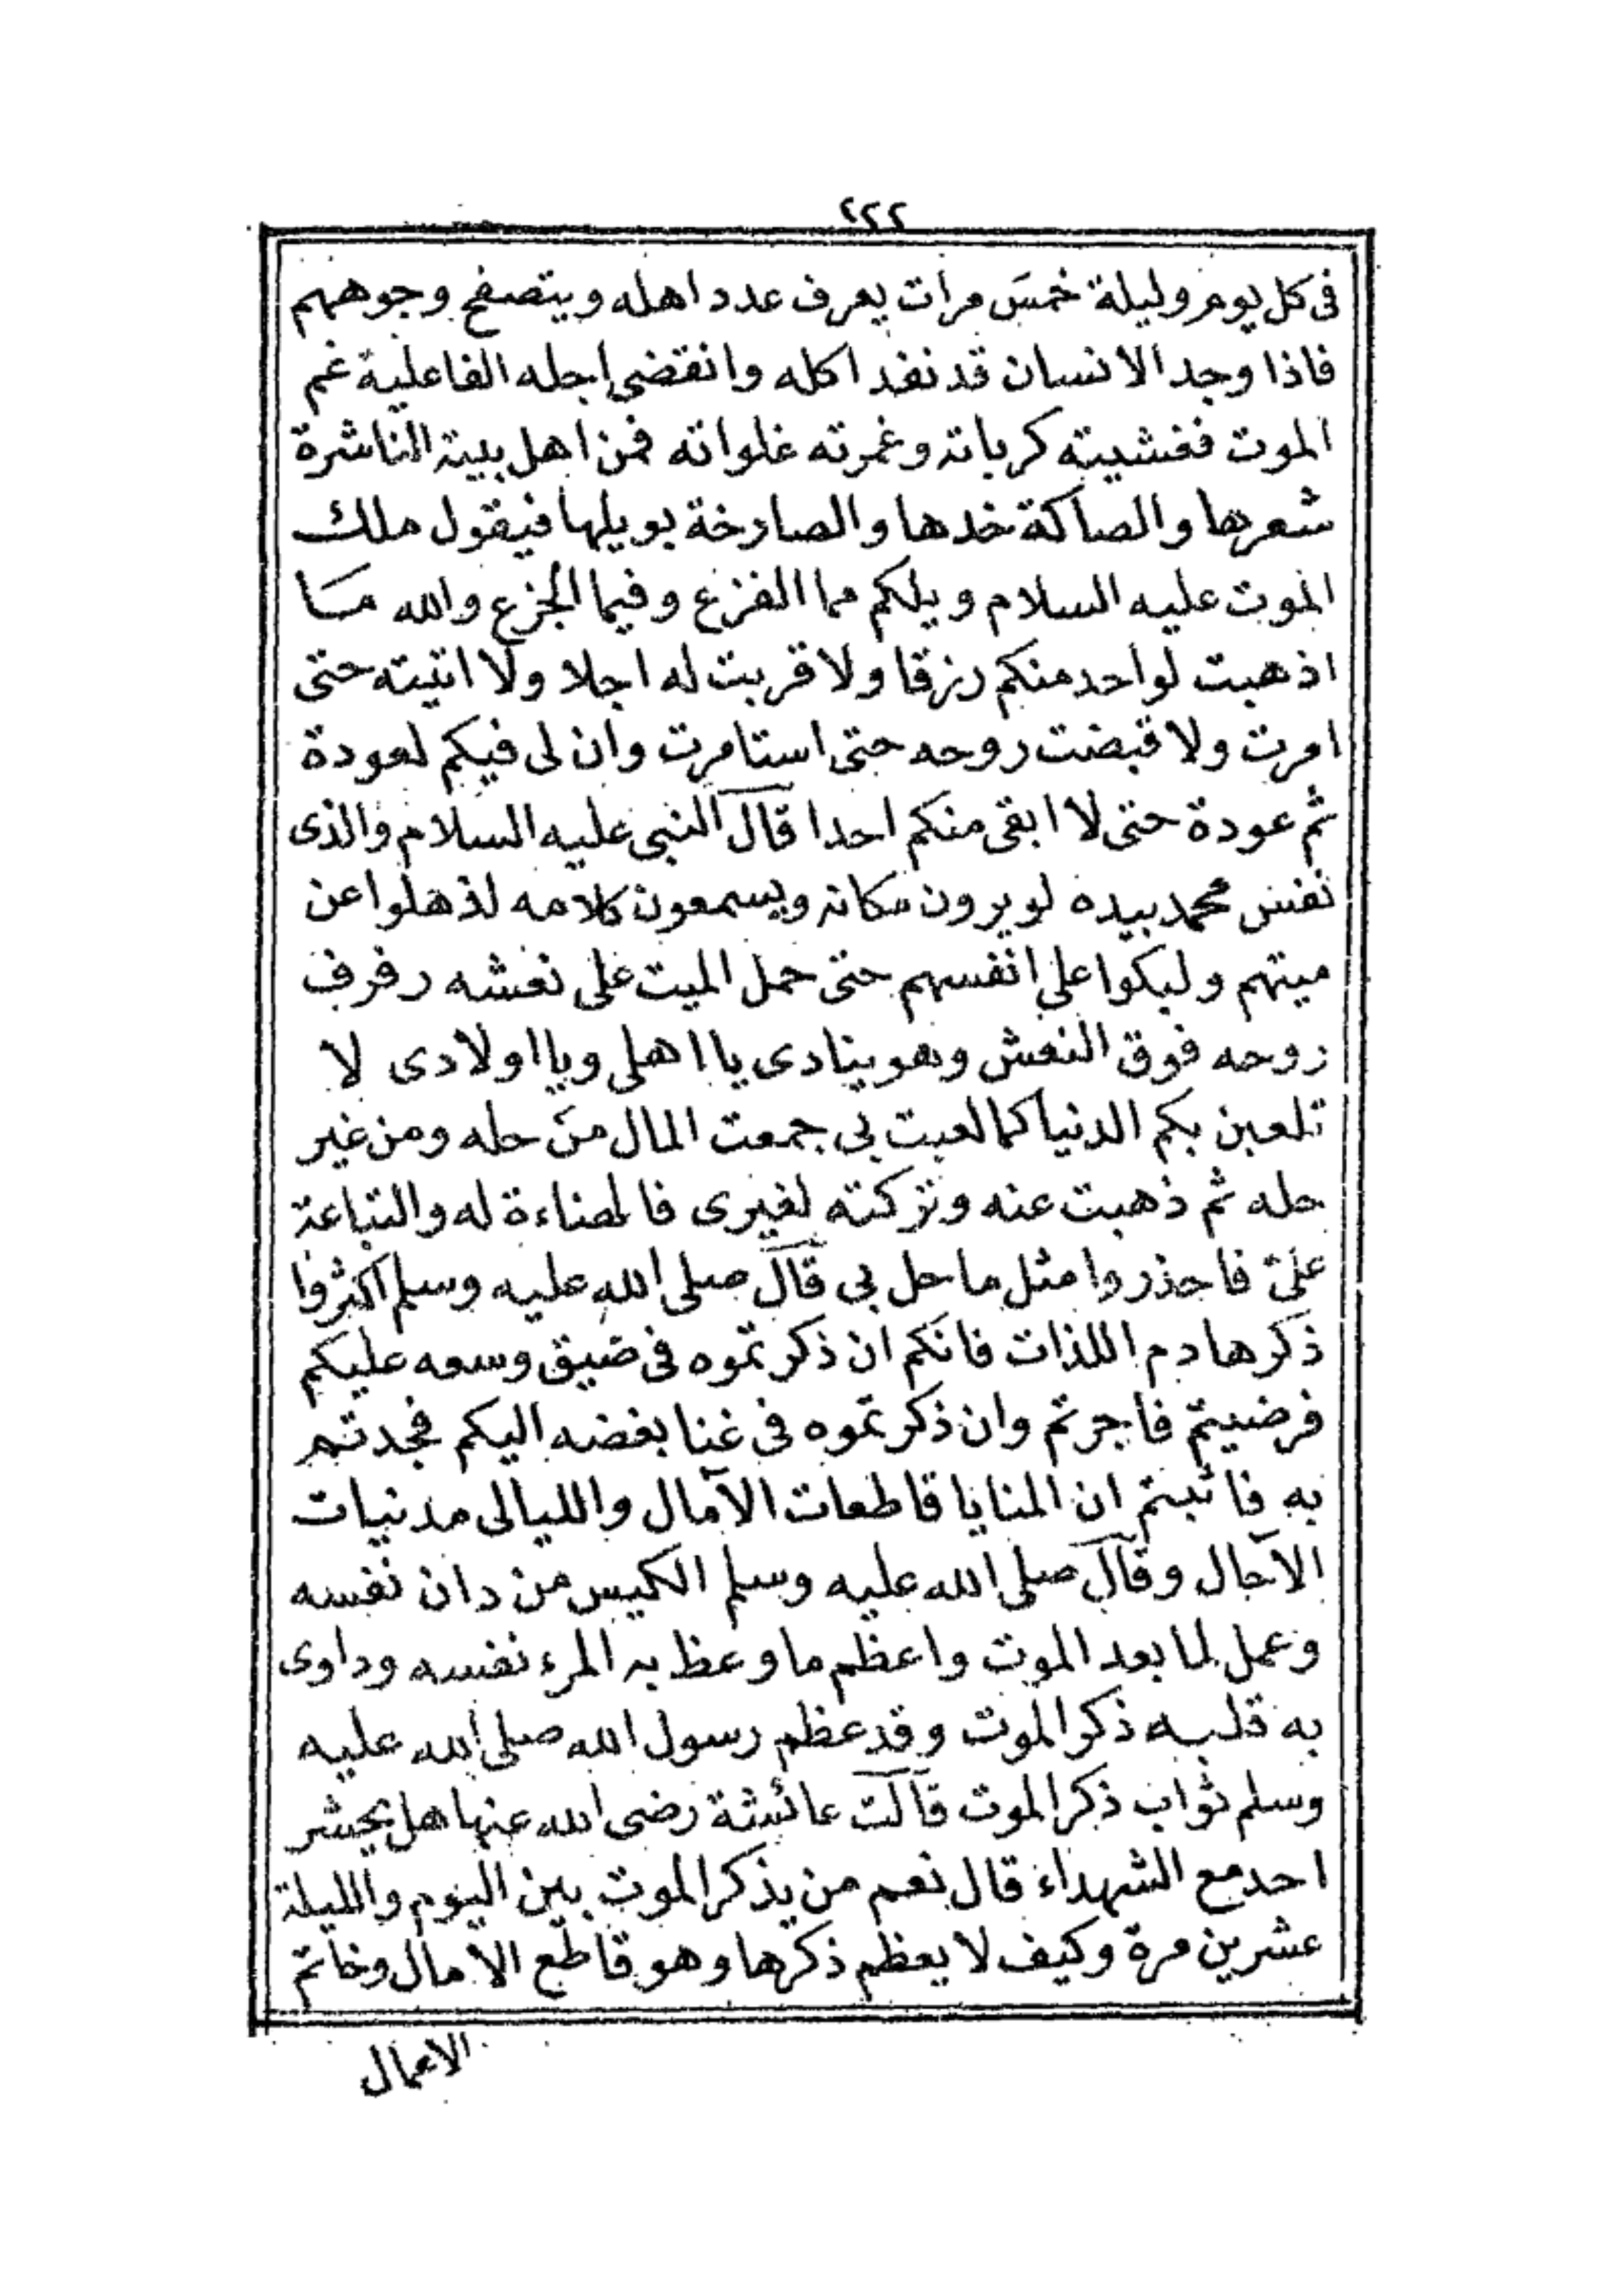 ٢٢٢
فى كل يوم وليلة خمسَ مرات يعرف عدد اهله ويتصفح وجوههم
فاذا وجد الانسان قد نفد اكله وانقضى اجله القا عليه غم
الموت فغشيته كرباته وغمرته غلواته فمن اهل بيته الناشرة
شعرها والصاكة خدها والصارخة بويلها فيقول ملك
الموت عليه السلام ويلكم مما الفزع وفيما الجزع والله مَا
اذهبت لواحد منكم رزقا ولا قربت له اجلا ولا اتيته حتى
امرت ولا قبضت روحه حتى استامرت وان لى فيكم لعودة
ثم عودة حتى لا ابقى منكم احدا قال النبى عليه السلام والذى
نفس محمد بيده لو يرون مكانه ويسمعون كلامه لذهلوا عن
ميتهم ولبكوا على انفسهم حتى حمل الميت على نعشه رفرف
روحه فوق النعش وهو ينادى يا اهلى ويا اولادى لا
تلعبن بكم الدنيا كما لعبت بى جمعت المال من حله ومن غير
حله ثم ذهبت عنه وتركته لغيرى فالهناءة له والتباعة
علىّ فاحذروا مثل ما حل بى قال صلى الله عليه وسلم اكثروا
ذكر هادم اللذات فانكم ان ذكرتموه فى ضيق وسعه عليكم
فرضيتم فاجرتم وان ذكرتموه فى غنا بغضه اليكم فجدتم
به فاثبتم ان المنايا قاطعات الآمال والليالى مدنيات
الآجال وقال صلى الله عليه وسلم الكيس من دان نفسه
وعمل لما بعد الموت واعظم ما وعظ به المرء نفسه وداوى
به قلبه ذكر الموت وقد عظم رسول الله صلى الله عليه
وسلم ثواب ذكر الموت قالت عائشة رضى الله عنها هل يحشر
احد مع الشهداء قال نعم من يذكر الموت بين اليوم والليلة
عشرين مرة وكيف لا يعظم ذكرها وهو قاطع الامال وخاتم
الاعمال